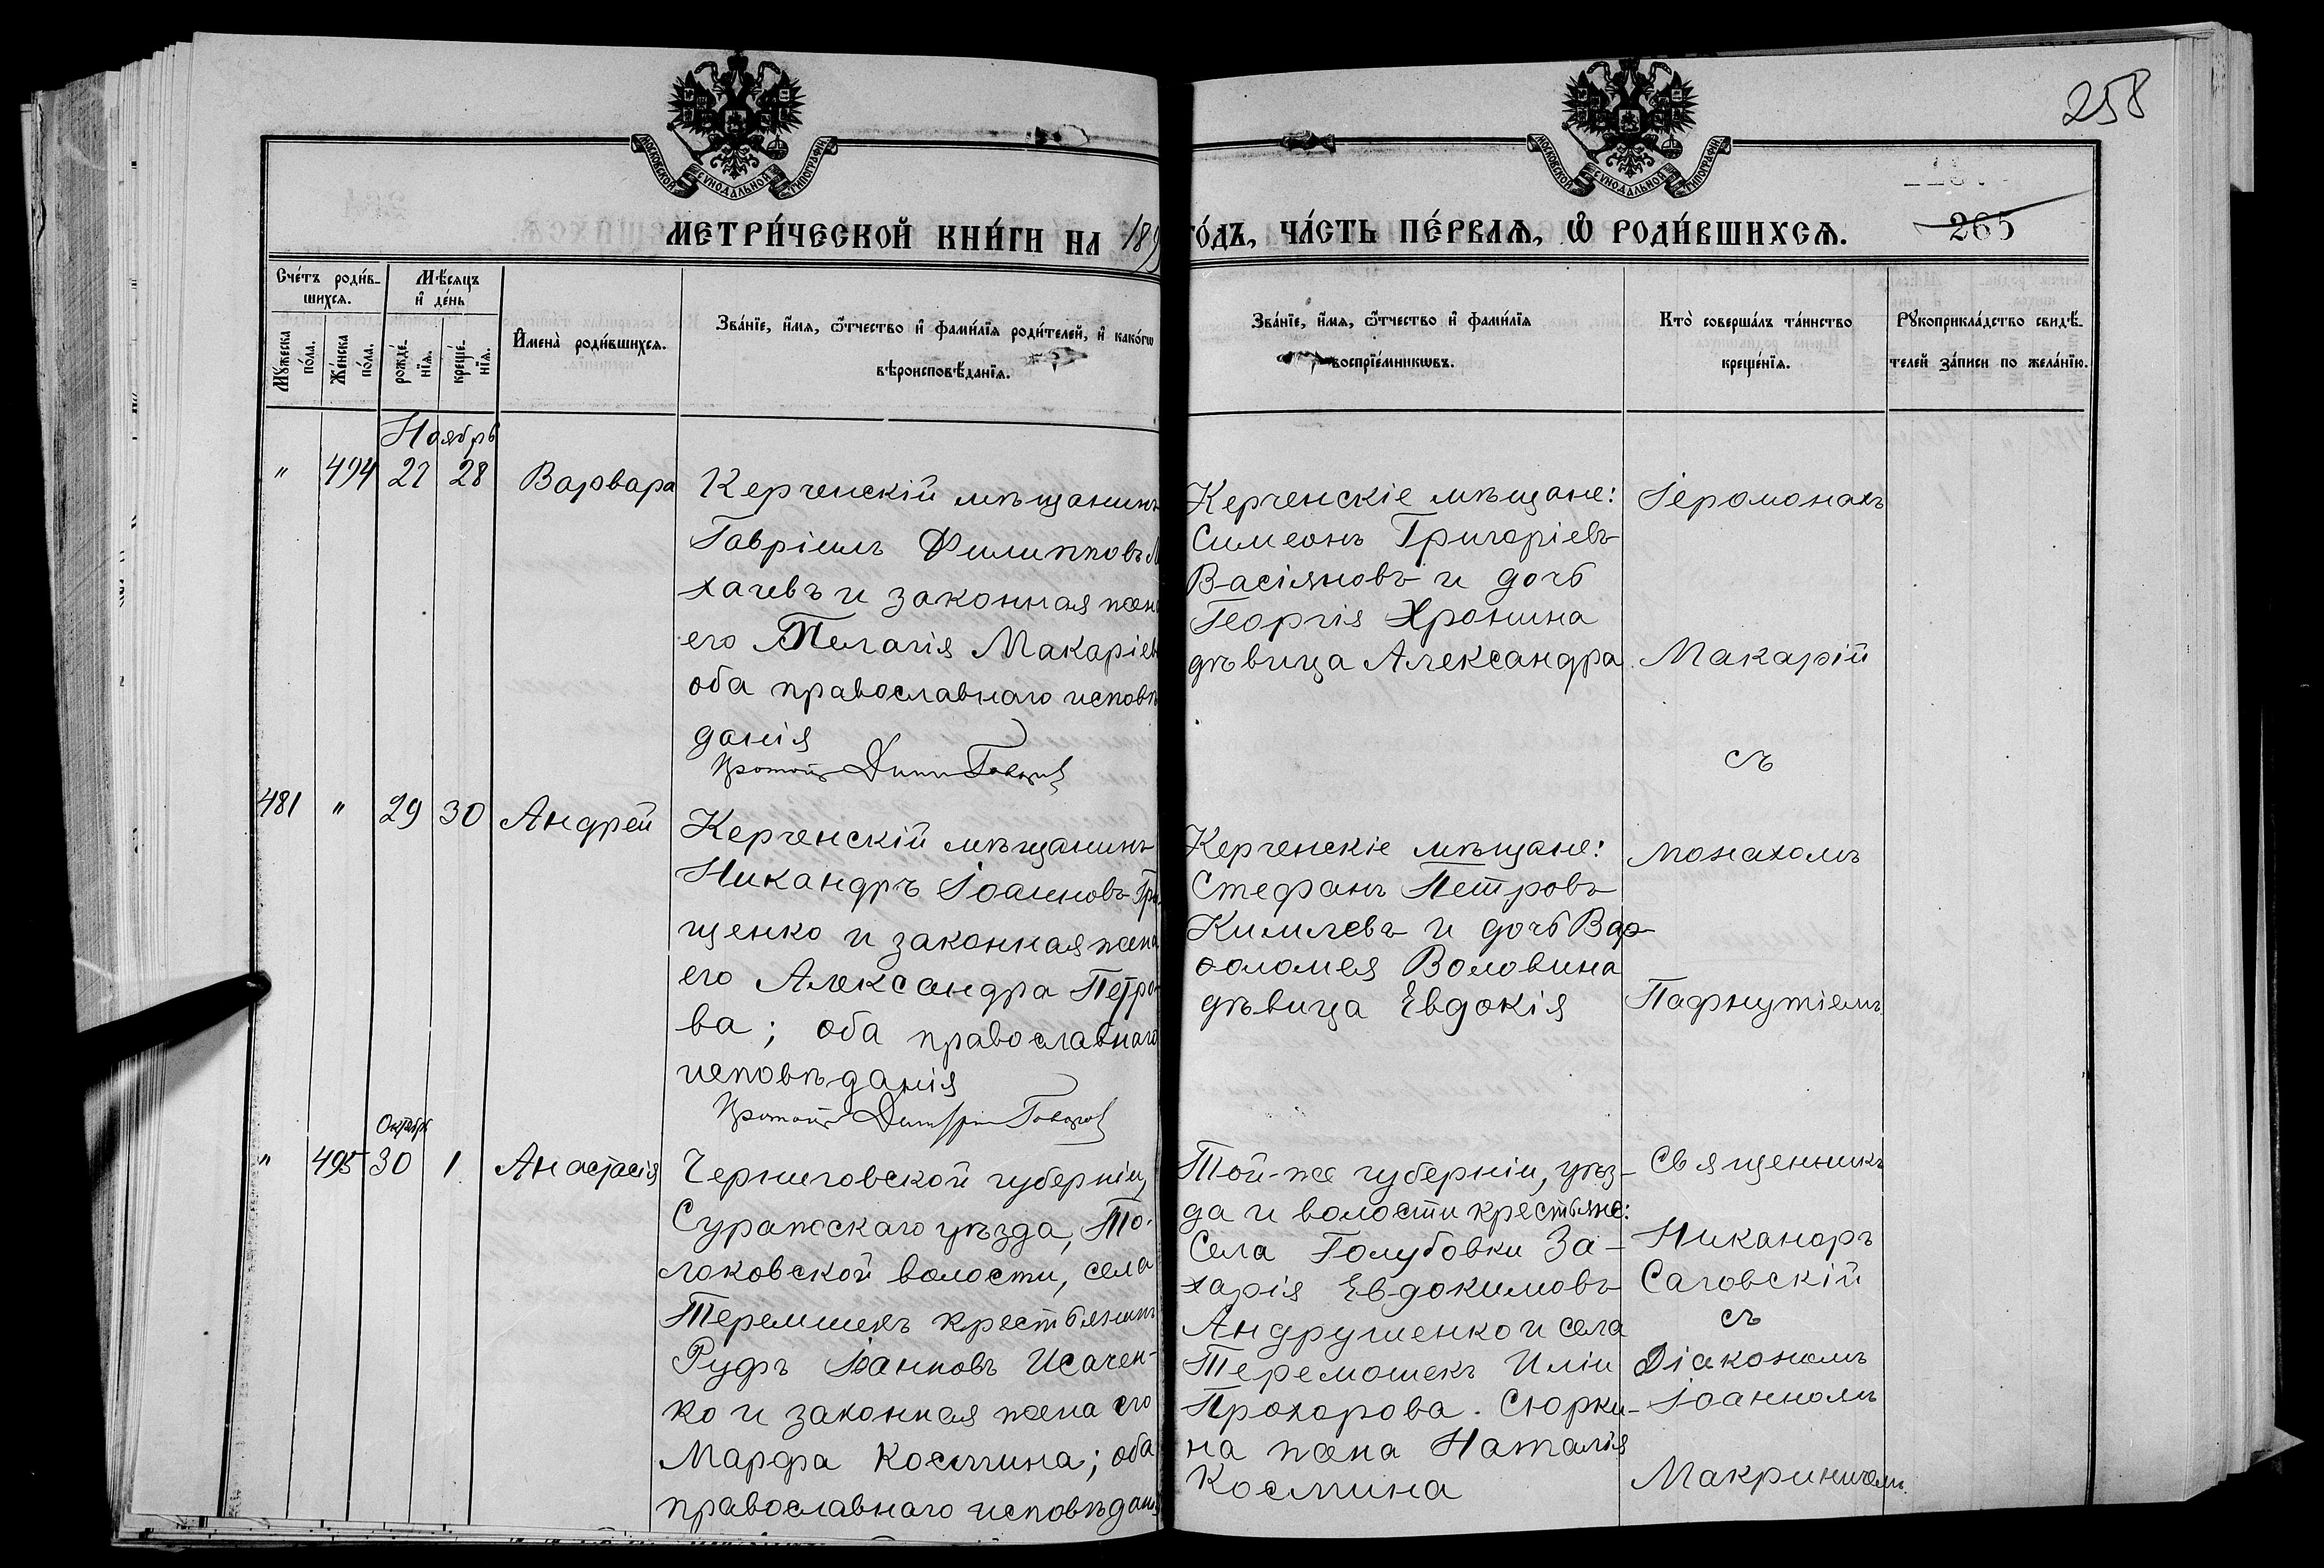 258
МОСКОВСКОЙ СѴНОДАЛЬНОЙ ТИПОГРАФІИ
МОСКОВСКОЙ СѴНОДАЛЬНОЙ ТИПОГРАФІИ
265
МЕТРИ́ЧЕСКОЙ КНИ́ГИ НА 189 ГО́ДЪ, ЧА́СТЬ ПЕ́РВАѦ, Ѡ҆ РОДИ́ВШИХСѦ.
Сче́тъ роди́в-
шихсѧ.
Мꙋ́жеска по́ла.
Же́нска по́ла.
Мѣ́сѧцъ
и҆ де́нь
рожде́-
нїѧ.
креще́-
нїѧ.
И҆мена̀ роди́вшихсѧ.
Зва́нїе, и҆́мѧ, ѻ҆́тчество и҆ фами́лїѧ роди́телей, и҆ како́гѡ
вѣроисповѣ́данїѧ.
Зва́нїе, и҆́мѧ, ѻ҆́тчество и҆ фами́лїѧ
воспрїе́мникѡвъ.
Кто̀ соверша́лъ та́инство
креще́нїѧ.
Рꙋкоприкла́дство свидѣ́-
телей за́писи по жела́нїю.
Ноябрь
" 494 27 28 Варвара
Керченскій мѣщанинъ
Гавріилъ Филипповъ
хачевъ и законная жена
его Пелагія Макаріев
оба православнаго исповѣ
данія
Протоіер Дим Говоров
Керченскіе мѣщане:
Симеонъ Григоріевъ
Васіяновъ и дочь
Георгія Хронина
дѣвица Александра
Іеромонахъ
Макарій
съ
481 " 29 30 Андрей
Керченскій мѣщанинъ
Никандръ Іоанновъ Гри
щенко и законная жена
его Александра Петро
ва; оба православнаго
исповѣданія
Протоіер Димитрій Говоров
Керченскіе мѣщане:
Стефанъ Петровъ
Кимлевъ и дочь Вар-
ѳоломея Воловина
дѣвица Евдокія
монахомъ
Пафнутіемъ
Октябрь
" 495 30 1 Анастасія
Черниговской губерніи,
Суражскаго уѣзда, То-
локовской волости, села
Теремшекъ крестьянинъ
Руфъ Іоанновъ Исачен-
ко и законная жена его
Марфа Космина; оба
православнаго исповѣдан
Той-же губерніи, уѣз-
да и волости крестьяне:
Села Голубовки За-
харія Евдокимовъ
Андрушенко и села
Теремошекъ Иліи
Прохорова. Сюрки-
на жена Наталія
Космина
Священникъ
Никаноръ
Саговскій
съ
Діакономъ
Іоанномъ
Макриничемъ.